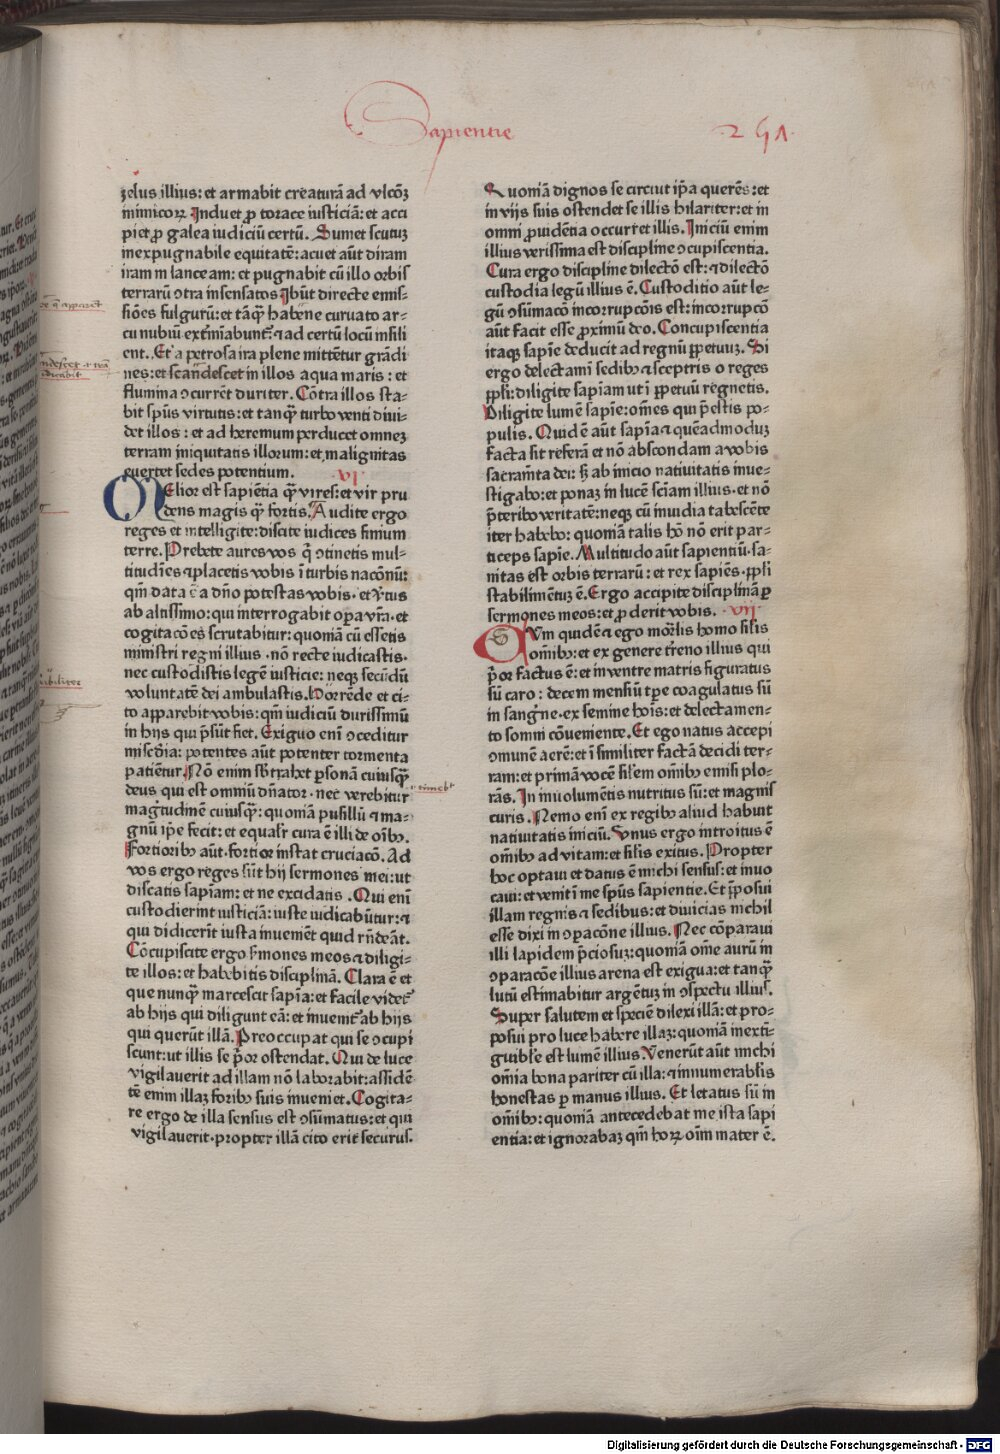 Sapientie
zelus illius: et armabit creaturā ad vlcōꝫ
inimicoꝝ. Induet ꝓ torace iusticiā: et acci
piet ꝓ galea iudiciū certū. Sumet scutuꝫ
inexpugnabile equitatē: acuet aūt diram
iram in lanceam: et pugnabit cū illo orbis
terrarū ɔtra insensatos Ibūt directe emis⸗
siões fulgurū: et tāqꝫ habene curuato ar⸗
cu nubiū extīiabunt᷑: ⁊ ad certū locū insili
ent. Et a petrosa ira plene mittētur grādi
nes: et scandescet in illos aqua maris: et
flumina ɔcurrēt duriter. Cōtra illos sta⸗
bit spūs virtutis: et tanqꝫ turbo venti diui⸗
det illos: et ad heremum perducet omneꝫ
terram iniquitatis illorum: et malignitas
euertet sedes potentium. vi
MElior est sapiētia qꝫ vires: et vir pru
dens magis qꝫ fortis. Audite ergo
reges et intelligite: discite iudices finium
terre. Prebete aures vos q̄ ɔtinetis mul⸗
titudīes ⁊ placetis vobis ī turbis nacōnū:
qm̄ data ē a dn̄o potestas vobis. et v̄tus
ab altissimo: qui interrogabit oꝑa vr̄a. et
cogitacōes scrutabitur: quoniā cū essetis
ministri regni illius. nō recte iudicastis.
nec custodistis legē iusticie: neqꝫ secūdū
voluntatē dei ambulastis. Horrēde et ci⸗
to apparebit vobis: qm̄ iudiciū durissimū
in hijs qui p̄sūt fiet. Exiguo enī ɔceditur
mīscd̄ia: potentes aūt potenter tormenta
patiētur. Nō enim sbt̄rahet ꝑsonā cuiusqꝫ
deus qui est omniū dn̄ator. nec verebitur
magt̄udinē cuiusqꝫ: quoniā pusillū ⁊ ma⸗
gnū ip̄e fecit: et equalr̄ cura ē illi de oībꝫ.
Fortioribꝫ aūt fortior instat cruciacō. Ad
vos ergo reges sūt hij sermones mei: ut
discatis sapīam: et ne excidatis. Qui enī
custodierint iusticiā: iuste iudicabūtur: ⁊
qui didicerīt iusta inuenīēt quid rn̄deāt.
Cōcupiscite ergo ẜmones meos ⁊ diligi⸗
te illos: et habebitis disciplinā. Clara ē et
que nunqꝫ marcescit sapīa: et facile videt᷑
ab hijs qui diligunt eā: et inuenīt᷑ ab hijs
qui querūt illā. Preoccupat qui se ɔcupi
scunt: ut illis se p̄or ostendat. Qui de luce
vigilauerit ad illam nō laborabit: assidē⸗
tē enim illaꝫ foribꝫ suis inueniet. Cogita⸗
re ergo de illa sensus est ɔsūmatus: et qui
vigilauerit propter illā cito erit securus.
Quoniā dignos se circūit ip̄a querēs: et
in vijs suis ostendet se illis hilariter: et in
omni ꝓuidētia occurret illis. Iniciū enim
illius verissima est discipline ɔcupiscentia.
Cura ergo discipline dilectō est: ⁊ dilectō
custodia legū illius ē. Custoditio aūt le⸗
gū ɔsūmacō incorrupcōis est: incorrupcō
aūt facit esse ꝓximū deo. Concupiscentia
itaqꝫ sapīe deducit ad regnū ꝑpetuuꝫ. Si
ergo delectamī sedibꝫ ⁊ sceptris o reges
ppl̄i: diligite sapīam ut ī ꝑpetuū regnetis.
Diligite lumē sapīe: om̄es qui p̄estis po⸗
pulis. Quid ē aūt sapīa ⁊ quēadmoduꝫ
facta sit referā et nō abscondam a vobis
sacram̄ta dei: ẜꝫ ab inicio natiuitatis inue⸗
stigabo: et ponaꝫ in lucē scīam illius. et nō
p̄teribo veritatē: neqꝫ cū inuidia tabescēte
iter habebo: quoniā talis hō nō erit par⸗
ticeps sapīe. Multitudo aūt sapientiū sa⸗
nitas est orbis terrarū: et rex sapiēs ppl̄i
stabilimētuꝫ ē. Ergo accipite disciplinā ꝑ
sermones meos: et ꝓderit vobis. vij
SVm quidē ⁊ ego mortl̄is homo sil̄is
om̄ibꝫ: et ex genere tr̄eno illius qui
p̄or factus ē: et in ventre matris figuratus
sū caro: decem mensiū tp̄e coagulatus sū
in sangn̄e. ex semine hoīs: et delectamen⸗
to somni cōueniente. Et ego natus accepi
ɔmunē aerē: et ī similiter factā decidi ter⸗
ram: et primā vocē sil̄em om̄ibꝫ emisi plo⸗
rās. In inuolumētis nutritus sū: et magnis
curis. Nemo enī ex regibꝫ aliud habuit
natiuitatis iniciū. Vnus ergo introitus ē
om̄ibꝫ ad vitam: et sil̄is exitus. Propter
hoc optaui et datus ē michi sensus: et inuo
caui: et venit ī me spūs sapientie. Et p̄posui
illam regnis ⁊ sedibus: et diuicias nichil
esse dixi in ɔpacōne illius. Nec cōparaui
illi lapidem p̄ciosuꝫ: quoniā om̄e aurū in
ɔparacōe illius arena est exigua: et tanqꝫ
lutū estimabitur argētuꝫ in ɔspectu illius.
Super salutem et speciē dilexi illā: et pro⸗
posui pro luce habere illaꝫ: quoniā inexti⸗
guibl̄e est lumē illius. Venerūt aūt michi
om̄ia bona pariter cū illa: ⁊ innumerabl̄is
honestas ꝑ manus illius. Et letatus sū in
om̄ibꝫ: quoniā antecedebat me ista sapi
entia: et ignorabaꝫ qm̄ hoꝝ oīm mater ē.
Digitalisierung gefördert durch die Deutsche Forschungsgemeinschaft - DFG